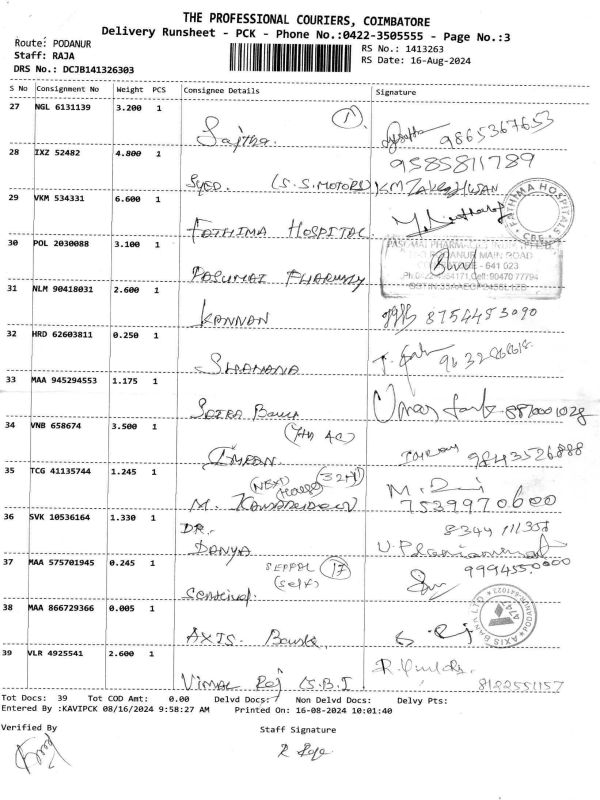 THE PROFESSIONAL COURIERS, COIMBATORE
Delivery Runsheet - PCK - Phone No.:0422-3505555 - Page No.:3
Route: PODANUR
RS No.: 1413263
Staff: RAJA
RS Date: 16-Aug-2024
DRS No.: DCJB141326303
S No Consignment No Weight PCS Consignee Details Signature
27 NGL 6131139 3.200 1
Sajitha. 1 9865367653
28 IXZ 52482 4.800 1
9585811789
SYED. (S.S.MOTORS)
29 VKM 534331 6.600 1
FATHIMA HOSPITAL
FATHIMA HOSPITALS
CBE
30 POL 2030088 3.100 1
PASUMAI PHARMACY
MAIN ROAD
641 023
31 NLM 90418031 2.600 1
KANNAN 8754453090
32 HRD 62603811 0.250 1
33 MAA 945294553 1.175 1
34 VNB 658674 3.500 1
IMRAN. 9843526888
35 TCG 41135744 1.245 1
(NEXT
M. 7539970600
36 SVK 10536164 1.330 1
DR.
DANYA
37 MAA 575701945 0.245 1
17
38 MAA 866729366 0.005 1
AXIS. Bank.
AXIS BANK LTD
PODANUR-641023
39 VLR 4925541 2.600 1
VIMAL Raj (S.B.I 8122551157
Tot Docs: 39 Tot COD Amt: 0.00 Delvd Docs: Non Delvd Docs: Delvy Pts:
Entered By :KAVIPCK 08/16/2024 9:58:27 AM Printed On: 16-08-2024 10:01:40
Verified By
Staff Signature